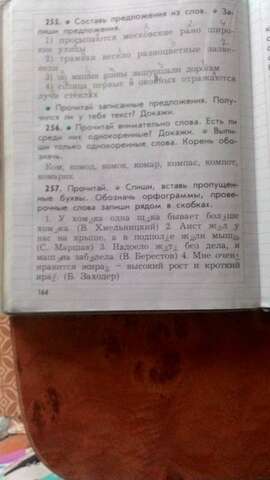 255. • Составь предложения из слов. • За-
пиши предложения.
1) просыпаются московские рано широ-
кие улицы
2) трамваи весело разноцветные
3) по машин
4) солнца первые в отражаются
лучи стёклах
• Прочитай записанные предложения. Полу-
чился ли у тебя текст? Докажи.
256. • Прочитай внимательно слова. Есть ли
среди них однокоренные? Докажи. • Выпи-
ши только однокоренные слова. Корень обо-
значь.
Ком, комод, комок, комар, компас, компот,
комарик.
257. Прочитай. • Спиши, вставь пропущен-
ные буквы. Обозначь орфограммы, прове-
рочные слова запиши рядом в скобках.
1. У хом_ка одна щ_ка бывает больше
хом_ка. (В. Хмельницкий) 2. Аист ж_л у
нас на крыше, а в подполье ж_ли мыши.
(С. Маршак) 3. Надоело ж_ть без дела, и
(В. Берестов) 4. Мне очень
нравится жира_ – высокий рост и кроткий
нра_. (Б. Заходер)
164